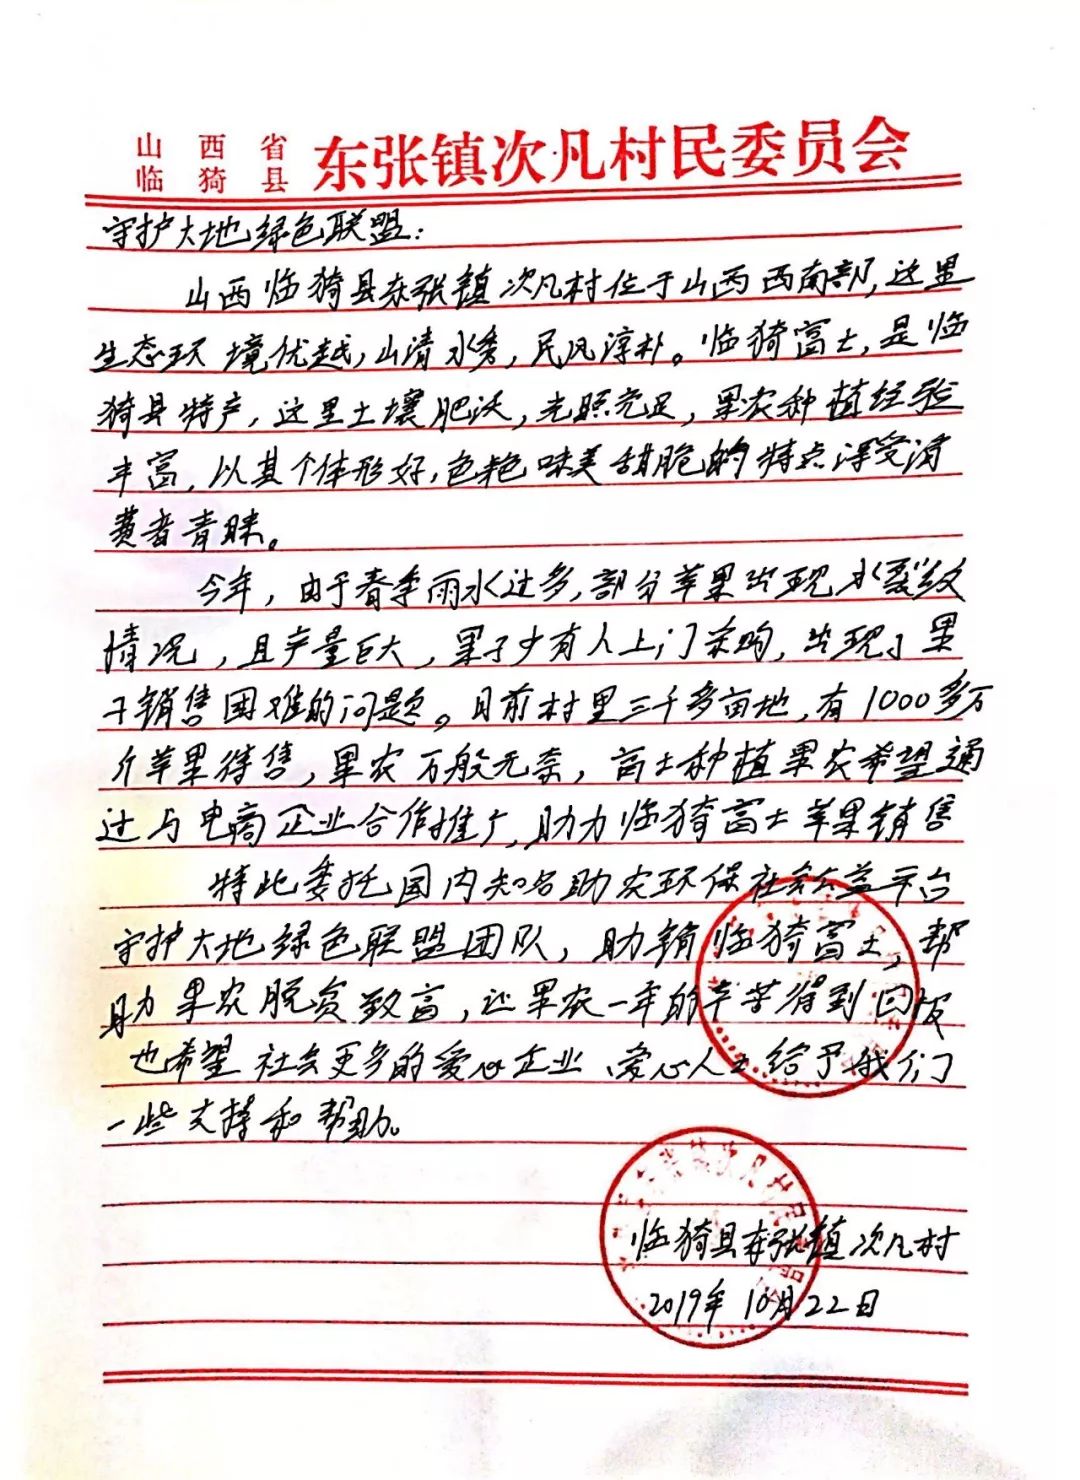 山西省
临猗县 东张镇次凡村民委员会
守护大地绿色联盟:
山西临猗县东张镇次凡村位于山西西南部,这里
生态环境优越,山清水秀,民风淳朴。临猗富士,是临
猗县特产,这里土壤肥沃,光照充足,果农种植经验
丰富,以其个体形好,色艳味美甜脆的特点深受消
费者青睐。
今年,由于春季雨水过多,部分苹果出现水裂纹
情况,且产量巨大,果子少有人上门采购,出现了果
子销售困难的问题。目前村里三千多亩地,有1000多万
斤苹果待售,果农万般无奈,富士种植果农希望通
过与电商企业合作推广,助力临猗富士苹果销售
特此委托国内知名助农环保社会公益平台
守护大地绿色联盟团队,助销临猗富士,帮
助果农脱贫致富,让果农一年的辛苦得到回报
也希望社会更多的爱心企业、爱心人士给予我们
一些支持和帮助。
临猗县东张镇次凡村
2019年10月22日